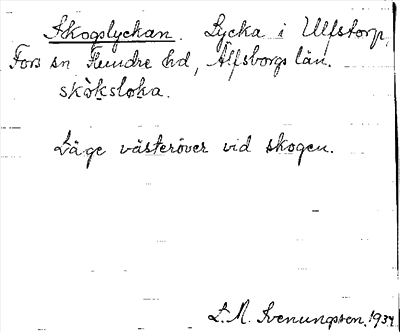 Skogslyckan. Lycka i Ulfstorp,
Fors sn Flundre hd, Älfsborgs län.
skòksloka.
Läge västeröver vid skogen.
L. M. Svenungsson. 1934